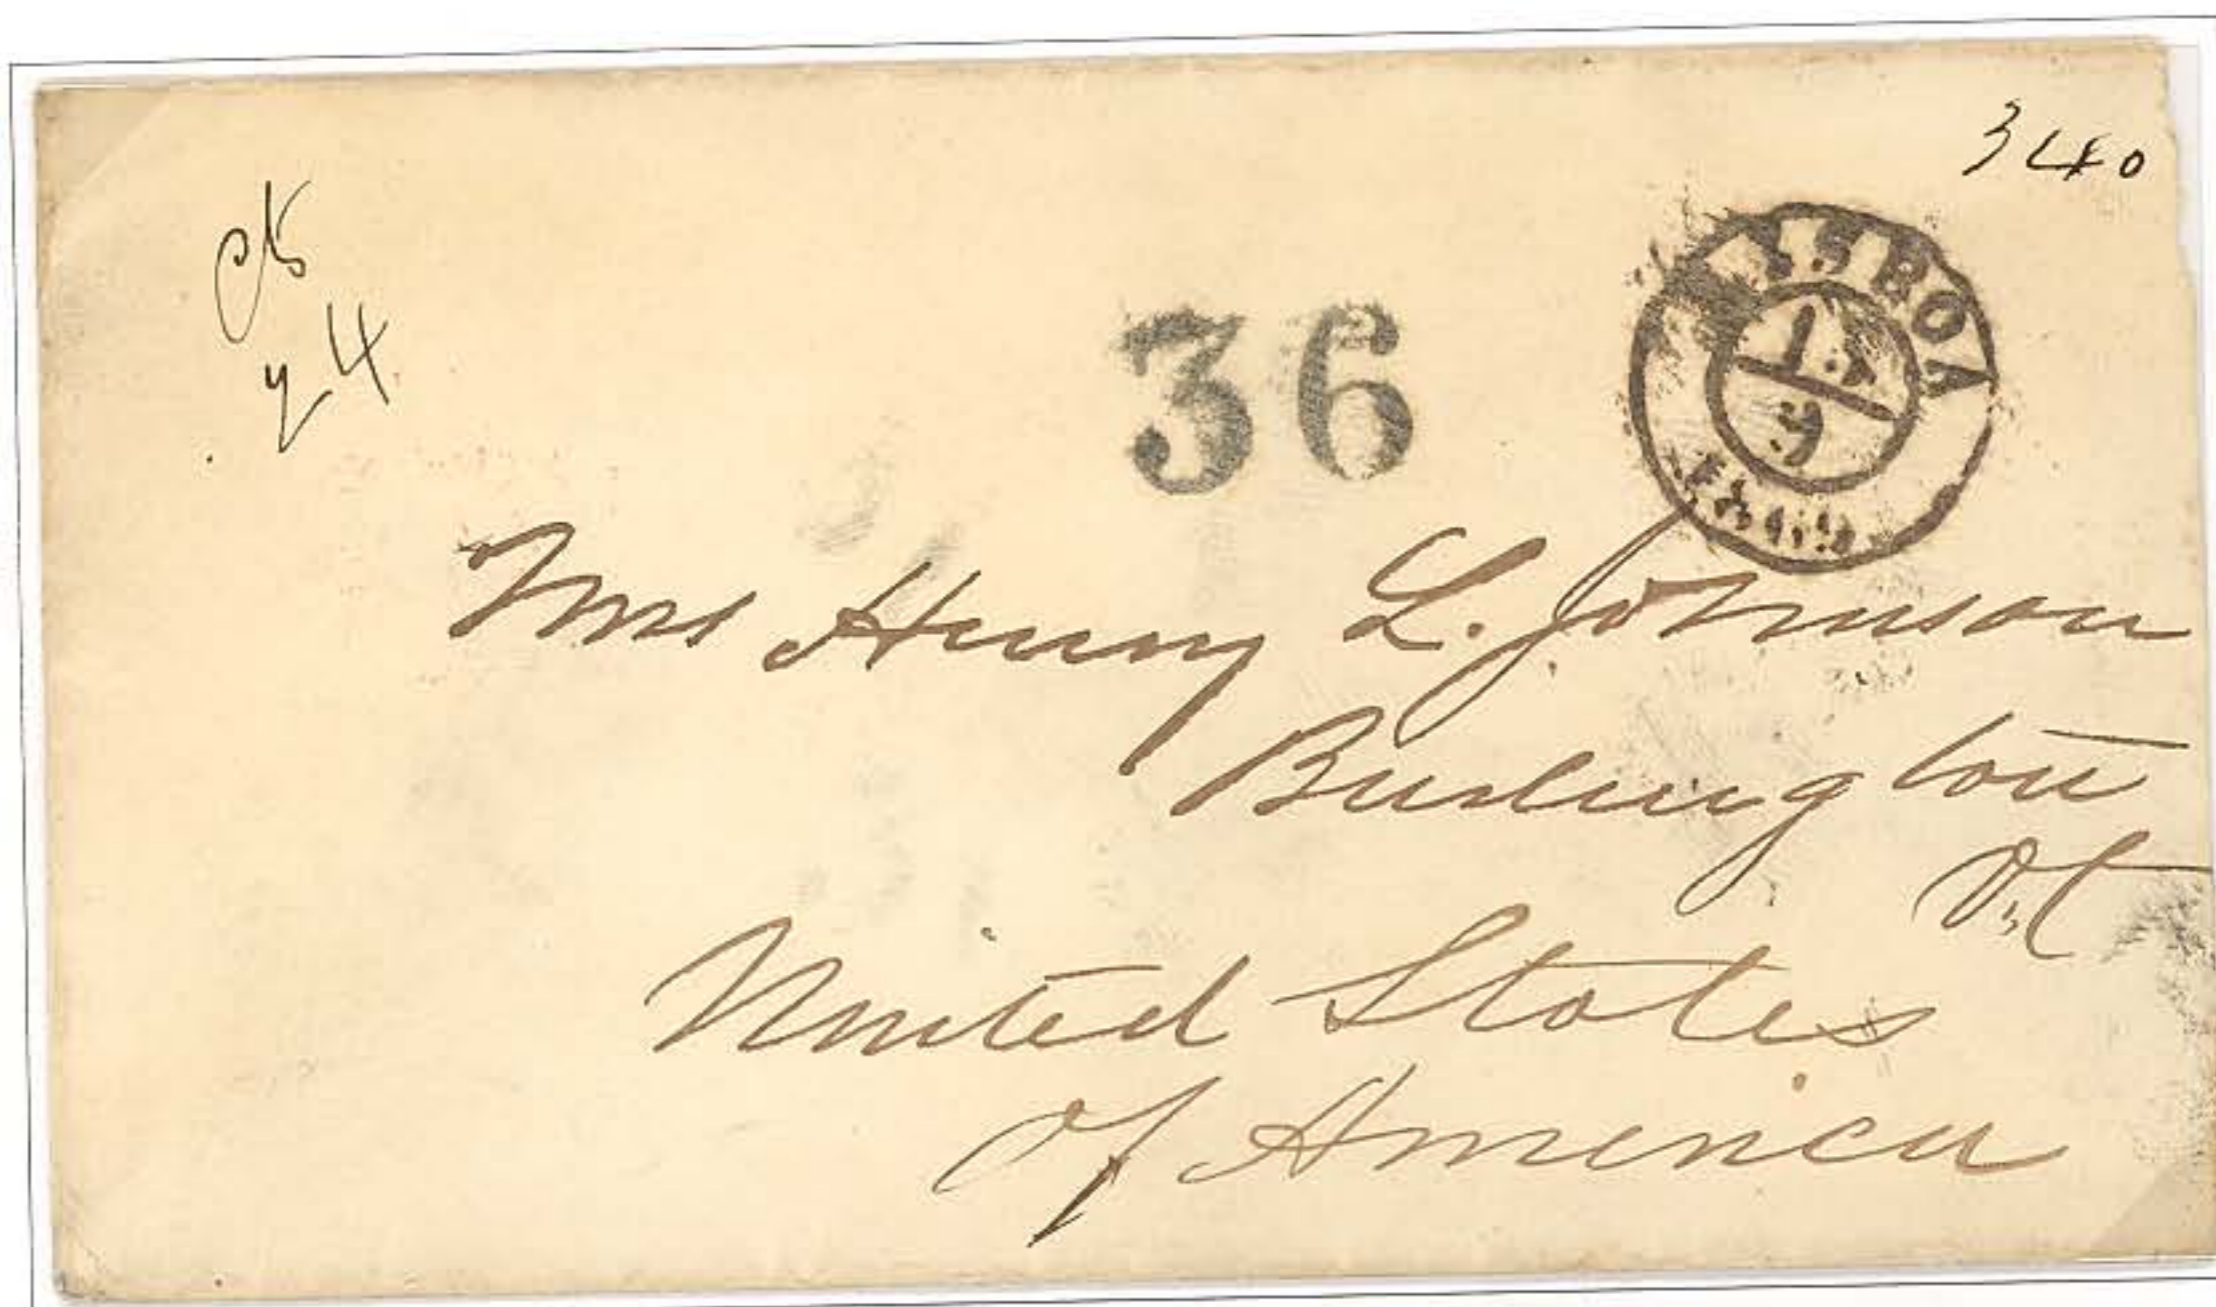 340
cts
24
36
LISBOA
9
1869
Mrs Henry L. Johnson
Burlington
Vt
United States
of America